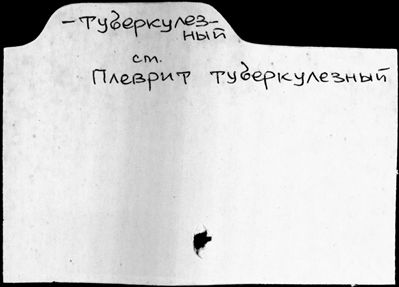 – туберкулез-
ный
ст.
Плеврит туберкулезный